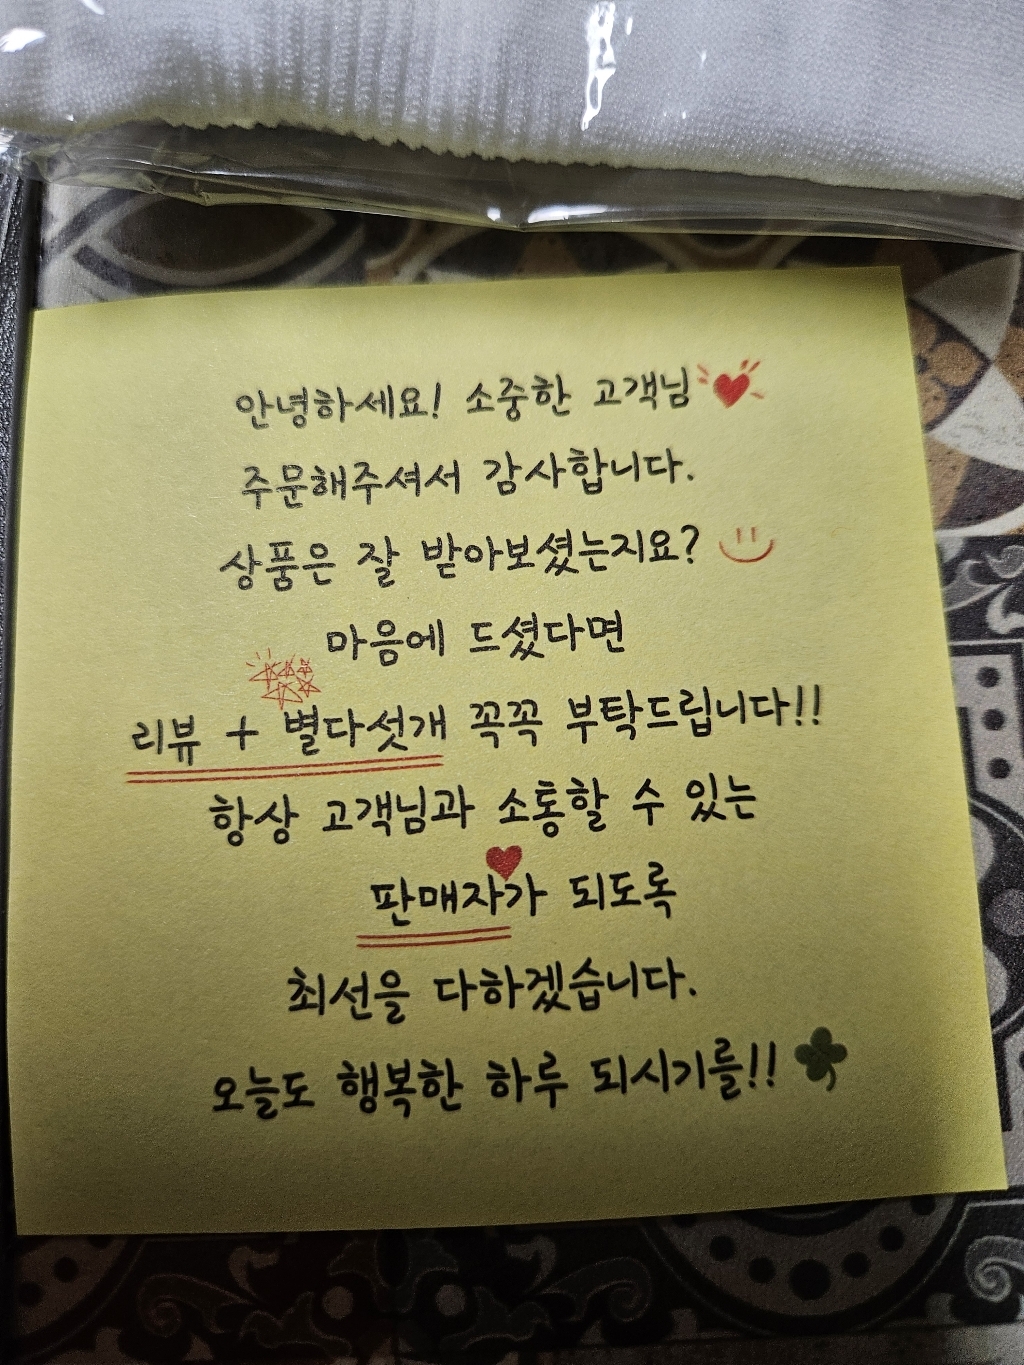 안녕하세요! 소중한 고객님
주문해주셔서 감사합니다.
상품은 잘 받아보셨는지요?
마음에 드셨다면
리뷰 + 별다섯개 꼭꼭 부탁드립니다!!
항상 고객님과 소통할 수 있는
판매자가 되도록
최선을 다하겠습니다.
오늘도 행복한 하루 되시기를!!